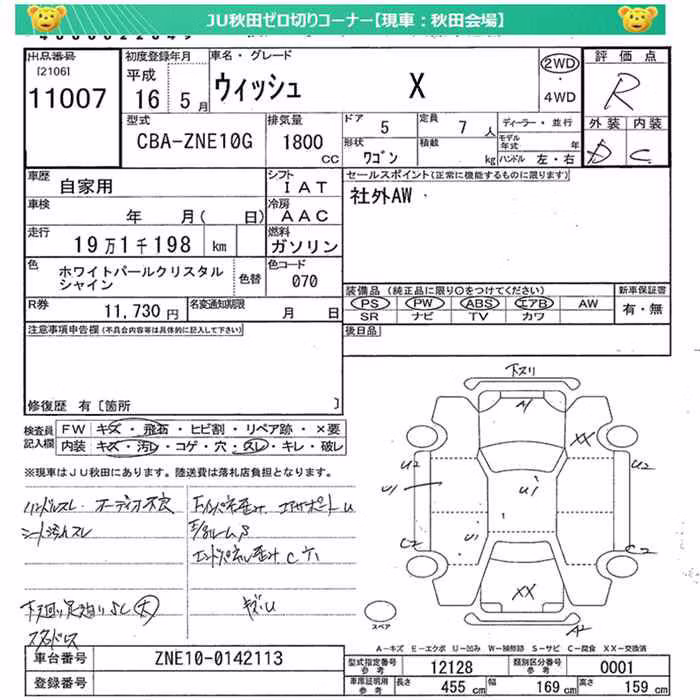 JU秋田ゼロ切りコーナー【現車：秋田会場】
出品番号
[2106]
11007
初度登録年月
平成
16 5月
車名・グレード
ウィッシュ X
2WD
・
4WD
評価点
R
外装 内装
D C
型式
CBA-ZNE10G
排気量
1800
CC
ドア 5
定員 7 人
形状 ワゴン
積載 kg
ディーラー・並行
モデル年式 年
ハンドル 左・右
車歴
自家用
シフト
IAT
車検
年 月( 日)
冷房
AAC
走行
19万1千198 km
燃料
ガソリン
色
ホワイトパールクリスタル
シャイン
色替
色コード
070
R券
11,730 円
名変通知期限
月 日
セールスポイント(正常に機能するものに限ります)
社外AW
装備品 (純正品に限り○をつけてください)
PS PW ABS エアB AW
SR ナビ TV カワ
新車保証書
有・無
後日品
注意事項申告欄 (不具合内容等は具体的に記入して下さい)
修復歴 有〔箇所 〕
検査員
記入欄
FW キズ・飛石・ヒビ割・リペア跡・×要
内装 キズ・汚レ・コゲ・穴・スレ・キレ・破レ
※現車はJU秋田にあります。陸送費は落札店負担となります。
ハンドルスレ オーディオ不良
シート汚れスレ
下廻り足廻りサビ(大)
スタッドレス
キズ・U
下スリ
A1
XX
U2
U2
U1
U1
U1
C2
C2
XX
A2
スペア
A-キズ E-エクボ U-凹み W-補修跡 S-サビ C-腐食 XX-交換済
車台番号
ZNE10-0142113
登録番号
型式指定番号
参考
12128
類別区分番号
参考
0001
車庫証明用
参考
長さ 455 cm
幅 169 cm
高さ 159 cm